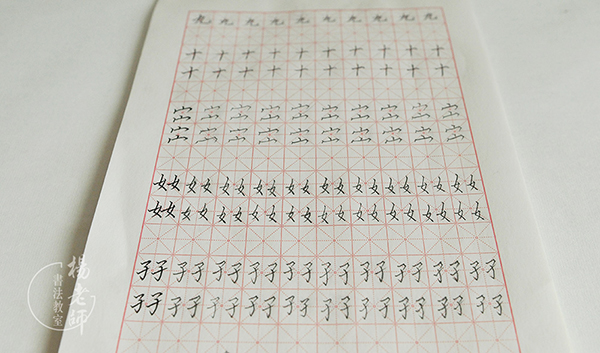 九九九九九九九九九九
十十十十十十十十十十
十十十十十十十十十十
宀宀宀宀宀宀宀宀宀宀
山山山山山山山山山山
宀宀宀宀宀宀宀宀宀宀
山山山山山山山山山山
女女女女女女女女女女女女女女女女女女女女
女女女女女女女女女女女女女女女女女女女女
子子子子子子子子子子子子子子子子子子子子
子子子子子子子子子子子子子子子子子子子子
楊老師
書法教室